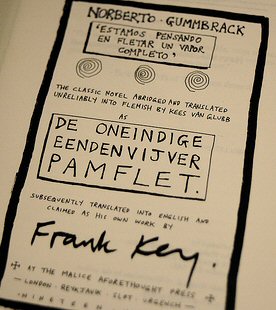 NORBERTO · GUMMBRACK
'ESTAMOS PENSANDO
EN FLETAR UN VAPOR
COMPLETO'
THE CLASSIC NOVEL ABRIDGED AND TRANSLATED
UNRELIABLY INTO FLEMISH BY KEES VAN GLUBB
AS
DE ONEINDIGE
EENDENVIJVER
PAMFLET.
SUBSEQUENTLY TRANSLATED INTO ENGLISH AND
CLAIMED AS HIS OWN WORK BY
Frank Key.
AT THE MALICE AFORETHOUGHT PRESS
LONDON · REYKJAVIK · SLOT · URGENCH
NINETEEN